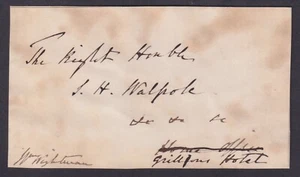 The Right Honble
S. H. Walpole
&c &c &c
Home Office
Grillions Hotel
Wm Wightman